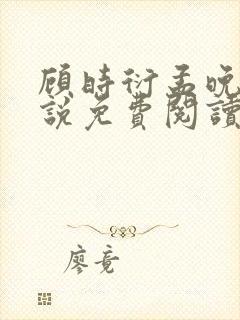 顾时衍孟晚
說免費閱讀
廖竟